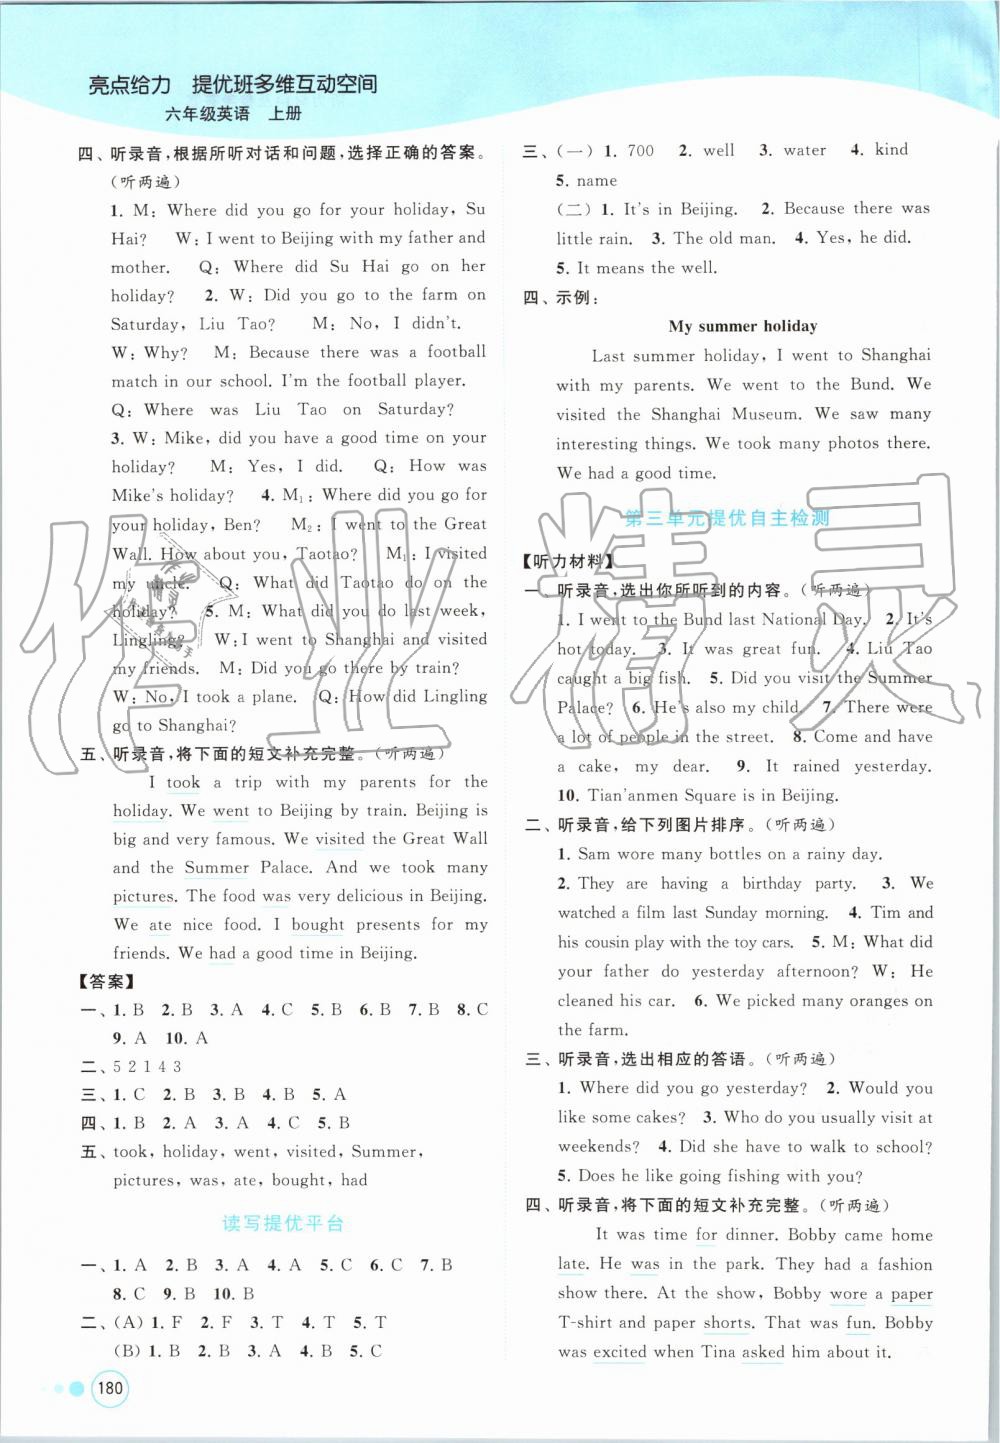 亮点给力 提优班多维互动空间
六年级英语 上册
四、听录音,根据所听对话和问题,选择正确的答案。
(听两遍)
1. M: Where did you go for your holiday, Su
Hai? W: I went to Beijing with my father and
mother. Q: Where did Su Hai go on her
holiday? 2. W: Did you go to the farm on
Saturday, Liu Tao? M: No, I didn't.
W: Why? M: Because there was a football
match in our school. I'm the football player.
Q: Where was Liu Tao on Saturday?
3. W: Mike, did you have a good time on your
holiday? M: Yes, I did. Q: How was
Mike's holiday? 4. M₁: Where did you go for
your holiday, Ben? M₂: I went to the Great
Wall. How about you, Taotao? M₁: I visited
my uncle. Q: What did Taotao do on the
holiday? 5. M: What did you do last week,
Lingling? W: I went to Shanghai and visited
my friends. M: Did you go there by train?
W: No, I took a plane. Q: How did Lingling
go to Shanghai?
五、听录音,将下面的短文补充完整。(听两遍)
I took a trip with my parents for the
holiday. We went to Beijing by train. Beijing is
big and very famous. We visited the Great Wall
and the Summer Palace. And we took many
pictures. The food was very delicious in Beijing.
We ate nice food. I bought presents for my
friends. We had a good time in Beijing.
【答案】
一、1. B 2. B 3. A 4. C 5. B 6. B 7. B 8. C
9. A 10. A
二、5 2 1 4 3
三、1. C 2. B 3. B 4. B 5. A
四、1. B 2. A 3. A 4. C 5. B
五、took, holiday, went, visited, Summer,
pictures, was, ate, bought, had
读写提优平台
一、1. A 2. B 3. A 4. A 5. C 6. C 7. B
8. C 9. B 10. B
二、(A) 1. F 2. F 3. T 4. T 5. T
(B) 1. B 2. B 3. A 4. B 5. C
180
三、(一) 1. 700 2. well 3. water 4. kind
5. name
(二) 1. It's in Beijing. 2. Because there was
little rain. 3. The old man. 4. Yes, he did.
5. It means the well.
四、示例:
My summer holiday
Last summer holiday, I went to Shanghai
with my parents. We went to the Bund. We
visited the Shanghai Museum. We saw many
interesting things. We took many photos there.
We had a good time.
第三单元提优自主检测
【听力材料】
一、听录音,选出你所听到的内容。(听两遍)
1. I went to the Bund last National Day. 2. It's
hot today. 3. It was great fun. 4. Liu Tao
caught a big fish. 5. Did you visit the Summer
Palace? 6. He's also my child. 7. There were
a lot of people in the street. 8. Come and have
a cake, my dear. 9. It rained yesterday.
10. Tian'anmen Square is in Beijing.
二、听录音,给下列图片排序。(听两遍)
1. Sam wore many bottles on a rainy day.
2. They are having a birthday party. 3. We
watched a film last Sunday morning. 4. Tim and
his cousin play with the toy cars. 5. M: What did
your father do yesterday afternoon? W: He
cleaned his car. 6. We picked many oranges on
the farm.
三、听录音,选出相应的答语。(听两遍)
1. Where did you go yesterday? 2. Would you
like some cakes? 3. Who do you usually visit at
weekends? 4. Did she have to walk to school?
5. Does he like going fishing with you?
四、听录音,将下面的短文补充完整。(听两遍)
It was time for dinner. Bobby came home
late. He was in the park. They had a fashion
show there. At the show, Bobby wore a paper
T-shirt and paper shorts. That was fun. Bobby
was excited when Tina asked him about it.
作业精灵